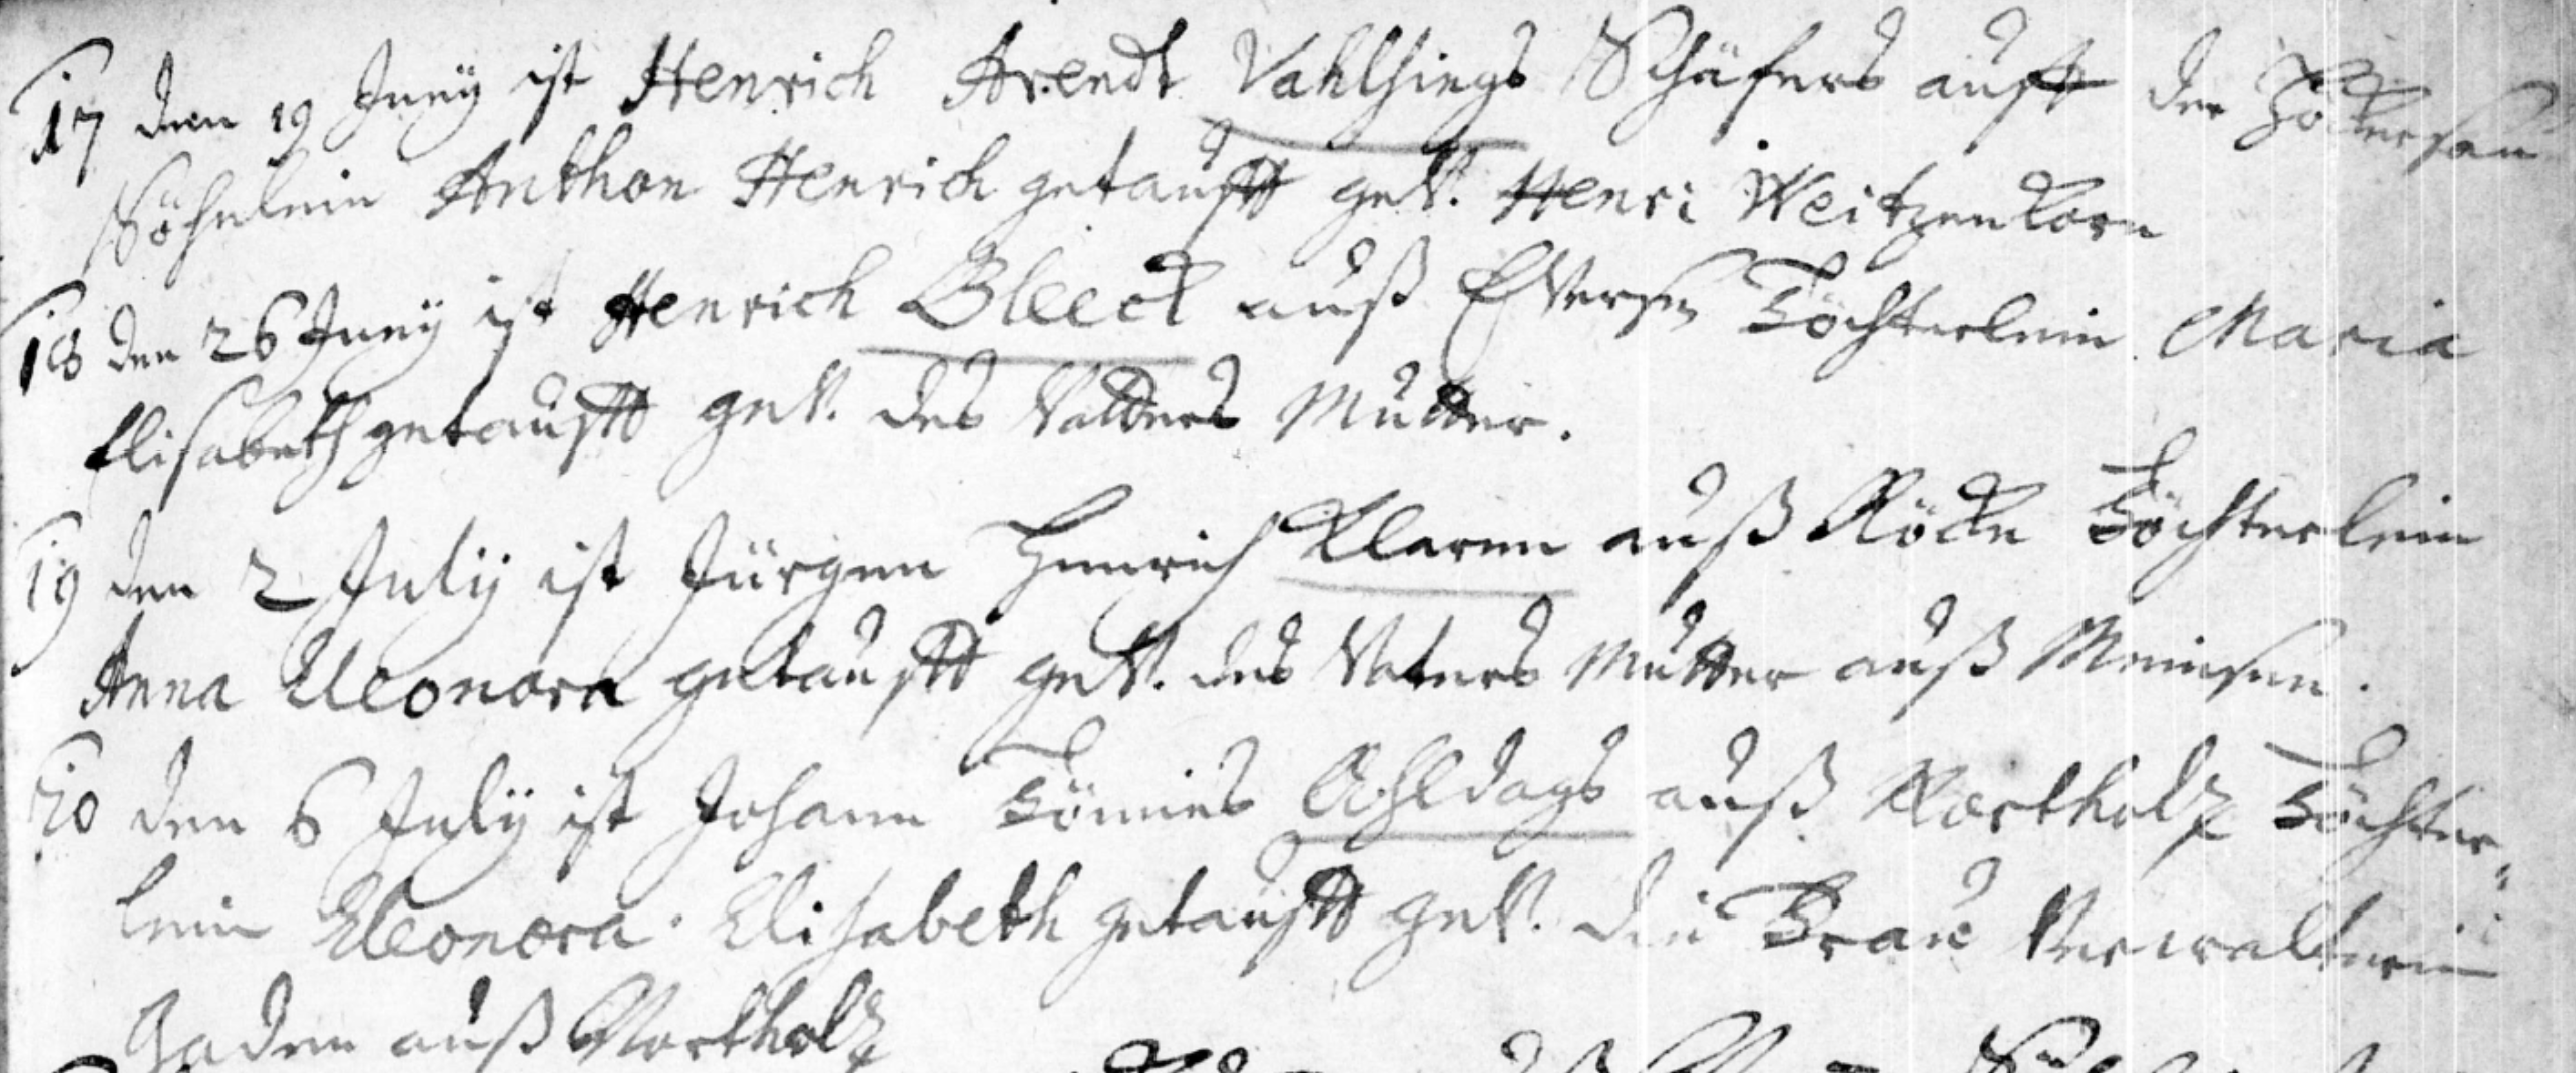 17 den 19 Junij ist Henrich Arendt Vahlsings Schäfers auff der
Söhnlein Anthon Henrich getaufft gev. Henri Weitzenkorn
18 den 26 Junij ist Henrich Bleeck auß Eversen Töchterlein Maria
Elisabeth getaufft gev. des Vatters Mutter.
19 den 2 Julij ist Jürgen Henrich Klaren auß Röcke Töchterlein
Anna Eleonora getaufft gev. des Vaters Mutter auß Meinsen.
20 den 6 Julij ist Johann Tönnies Ahldags auß Northolz Töchter-
lein Eleonora Elisabeth getaufft gev. die Frau Verwalterin
Gaden auß Northolz